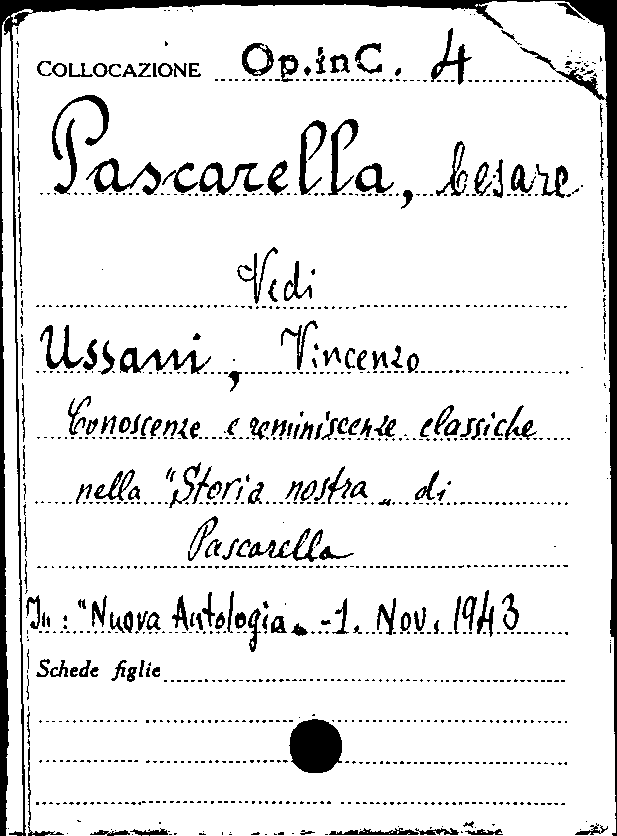 COLLOCAZIONE Op.in C. 4
Pascarella, Cesare
Vedi
Ussani, Vincenzo
Conoscenze e reminiscenze classiche
nella "Storia nostra" di
Pascarella
In: "Nuova Antologia" - 1. Nov. 1943
Schede figlie